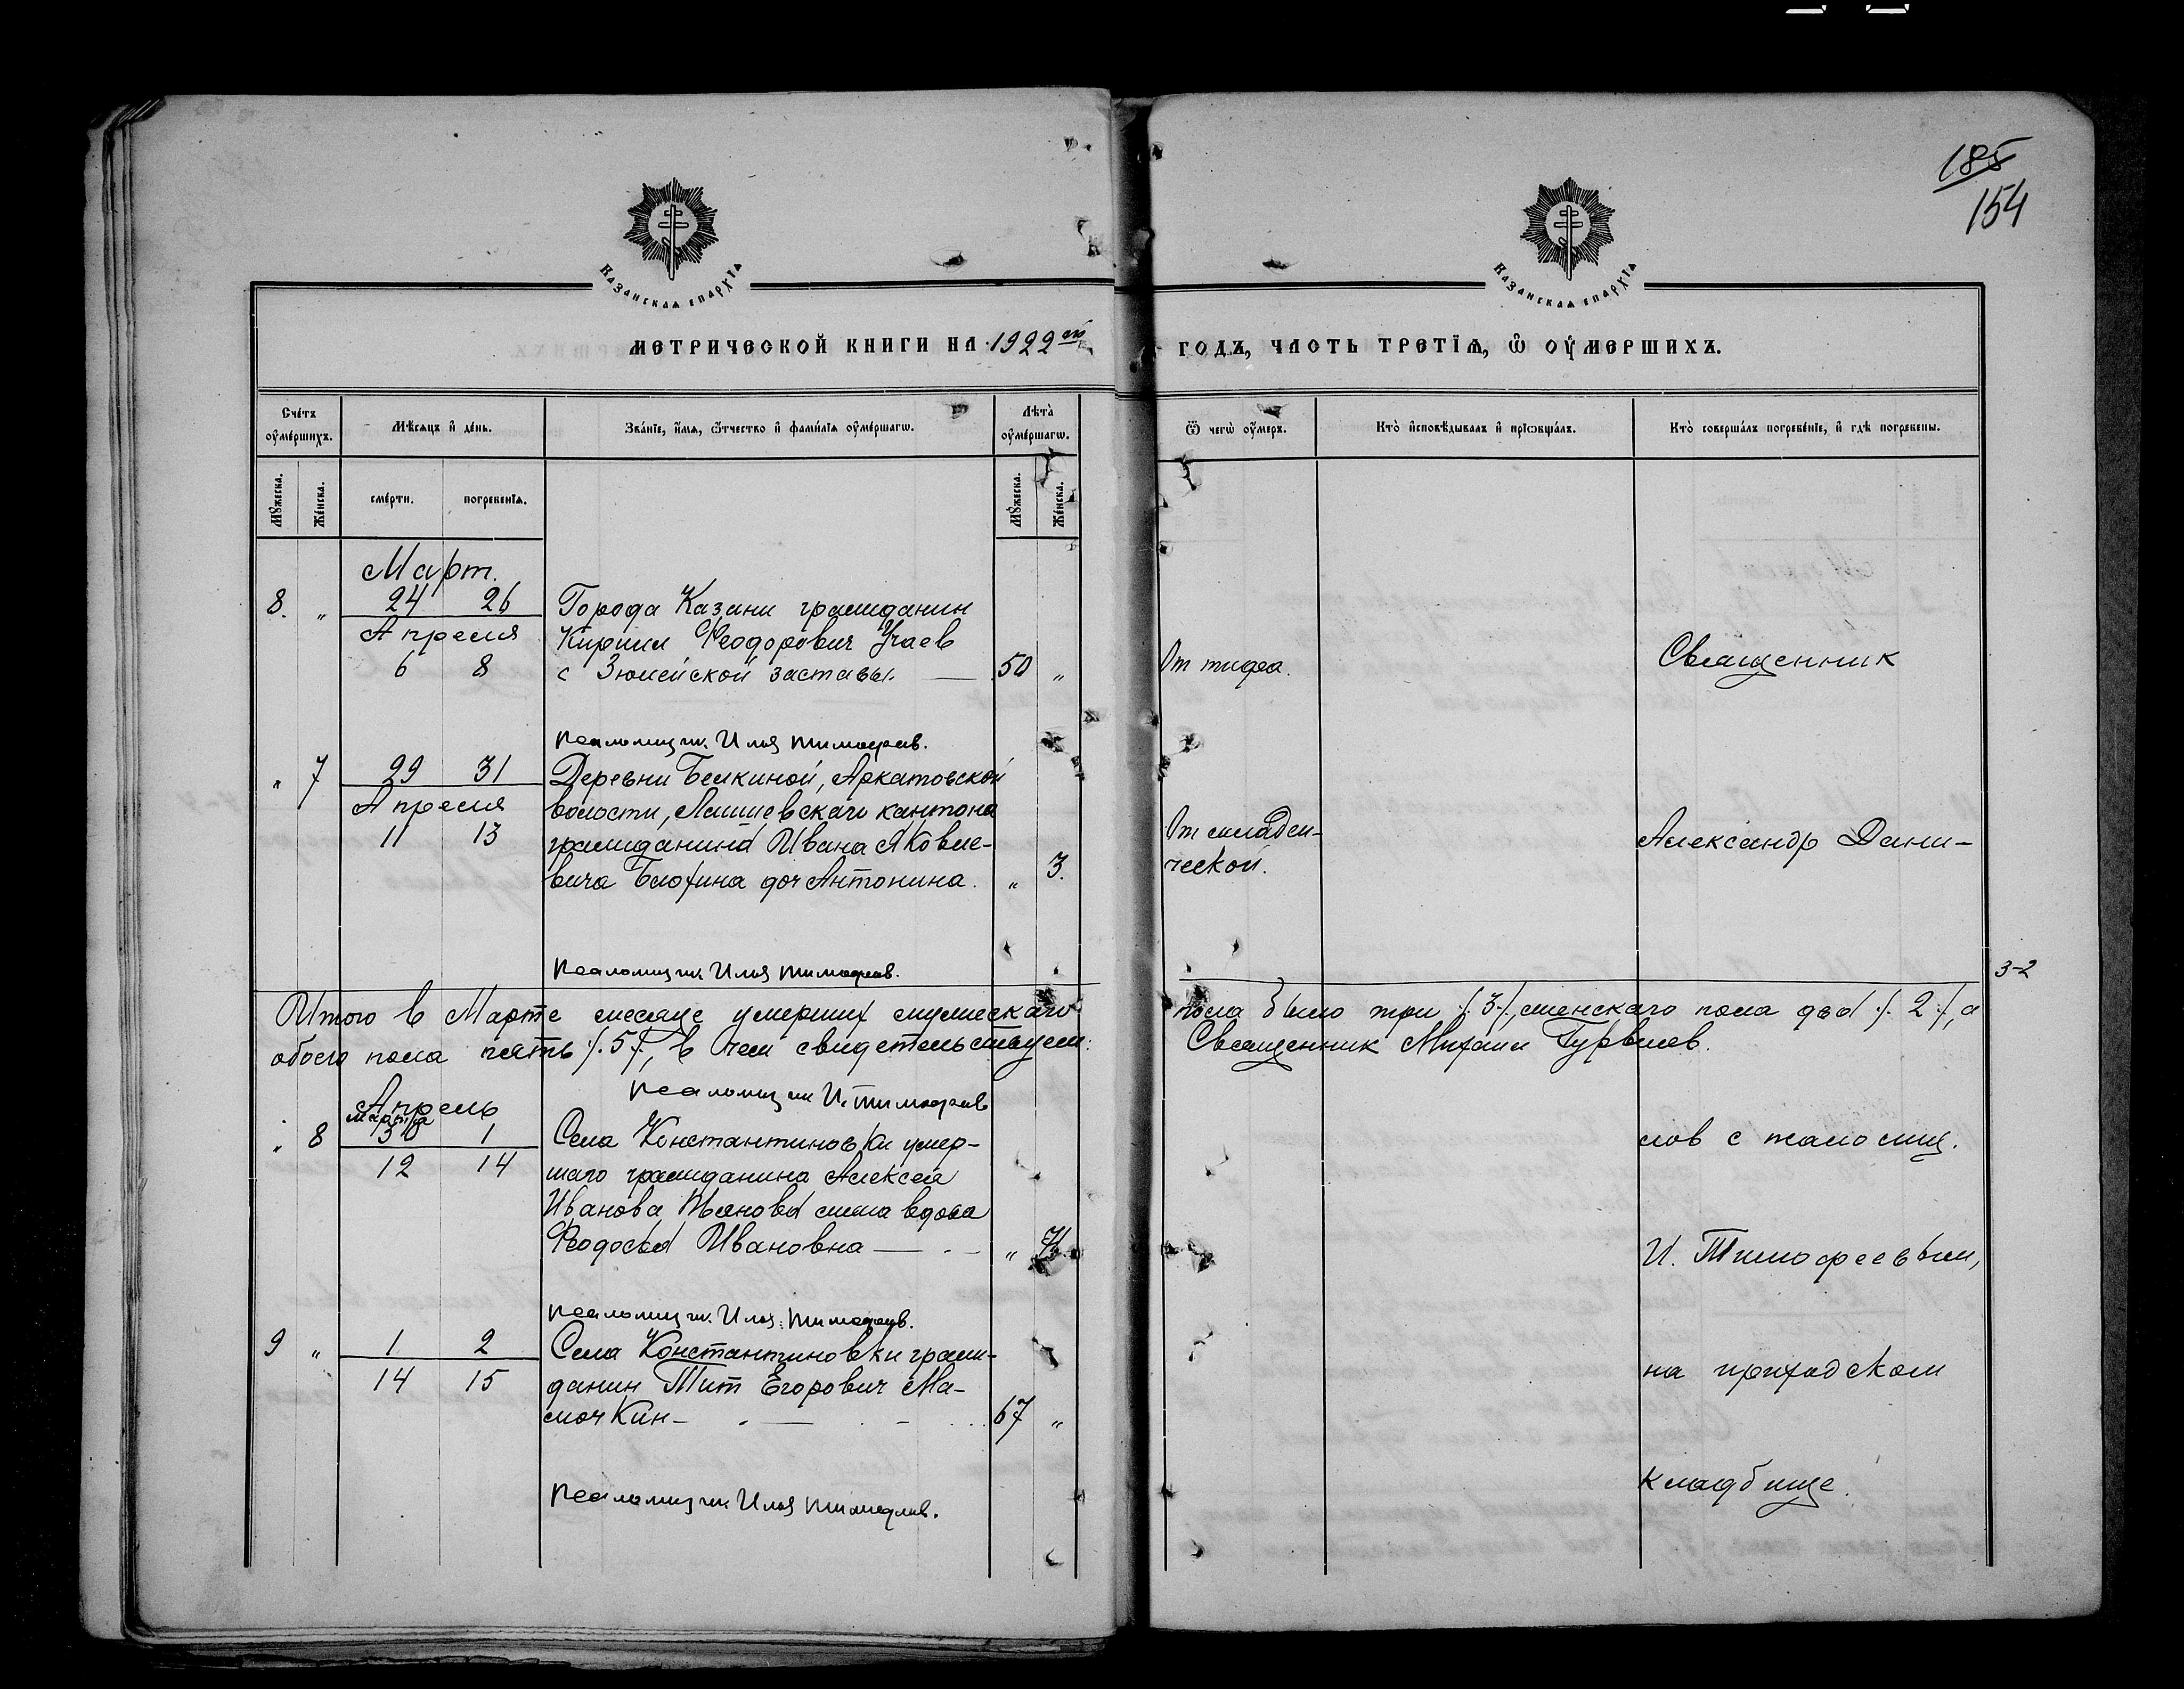 185
154
КАЗАНСКАЯ ЕПАРХІЯ
КАЗАНСКАЯ ЕПАРХІЯ
МЕТРИЧЕСКОЙ КНИГИ НА 1922 ой
ГОДЪ, ЧАСТЬ ТРЕТІЯ, Ѿ ОУМЕРШИХЪ.
Счетъ оумершихъ.
Мѣсяцъ и день.
Званіе, имя, отчество и фамилія оумершагѡ.
Лѣта оумершагѡ.
Ѿ чегѡ оумеръ.
Кто исповѣдывалъ и пріѡбщалъ.
Кто совершалъ погребеніе, и гдѣ погребены.
Мужеска.
Женска.
смерти.
погребенія.
Мужеска.
Женска.
Март.
8. " 24 26 Города Казани гражданин
Апреля Кирилл Феодорович Учаев
6 8 с Зюлейской заставы. — 50 " От тифа. Священник
Псаломщик. Илья Тимофеев.
" 7 29 31 Деревни Белкиной, Аркатовской
Апреля волости, Лаишевскаго кантона
11 13 гражданина Ивана Яковле- От младен- Александр Дани-
вича Блохина доч Антонина. " 3. ческой.
Псаломщик Илья Тимофеев.
3-2
Итого в Марте месяце умерших мужескаго пола было три /.3./, женскаго пола два /.2./, а
обоего пола пять /.5./, в чем свидетельствуем: Священник Михаил Гурьвлев.
Псаломщик И. Тимофеев
Апрель
Марта
" 8 30 1 Села Константиновки умер- лов с псаломщ.
12 14 шаго гражданина Алексея
Иванова жена вдова
Феодосья Ивановна — " И. Тимофеевым,
Псаломщик. Илья Тимофеев.
9 " 1 2 Села Константиновки граж-
14 15 данин Тит Егорович Ма- на приходском
мочкин — 67 "
кладбище.
Псаломщик Илья Тимофеев.